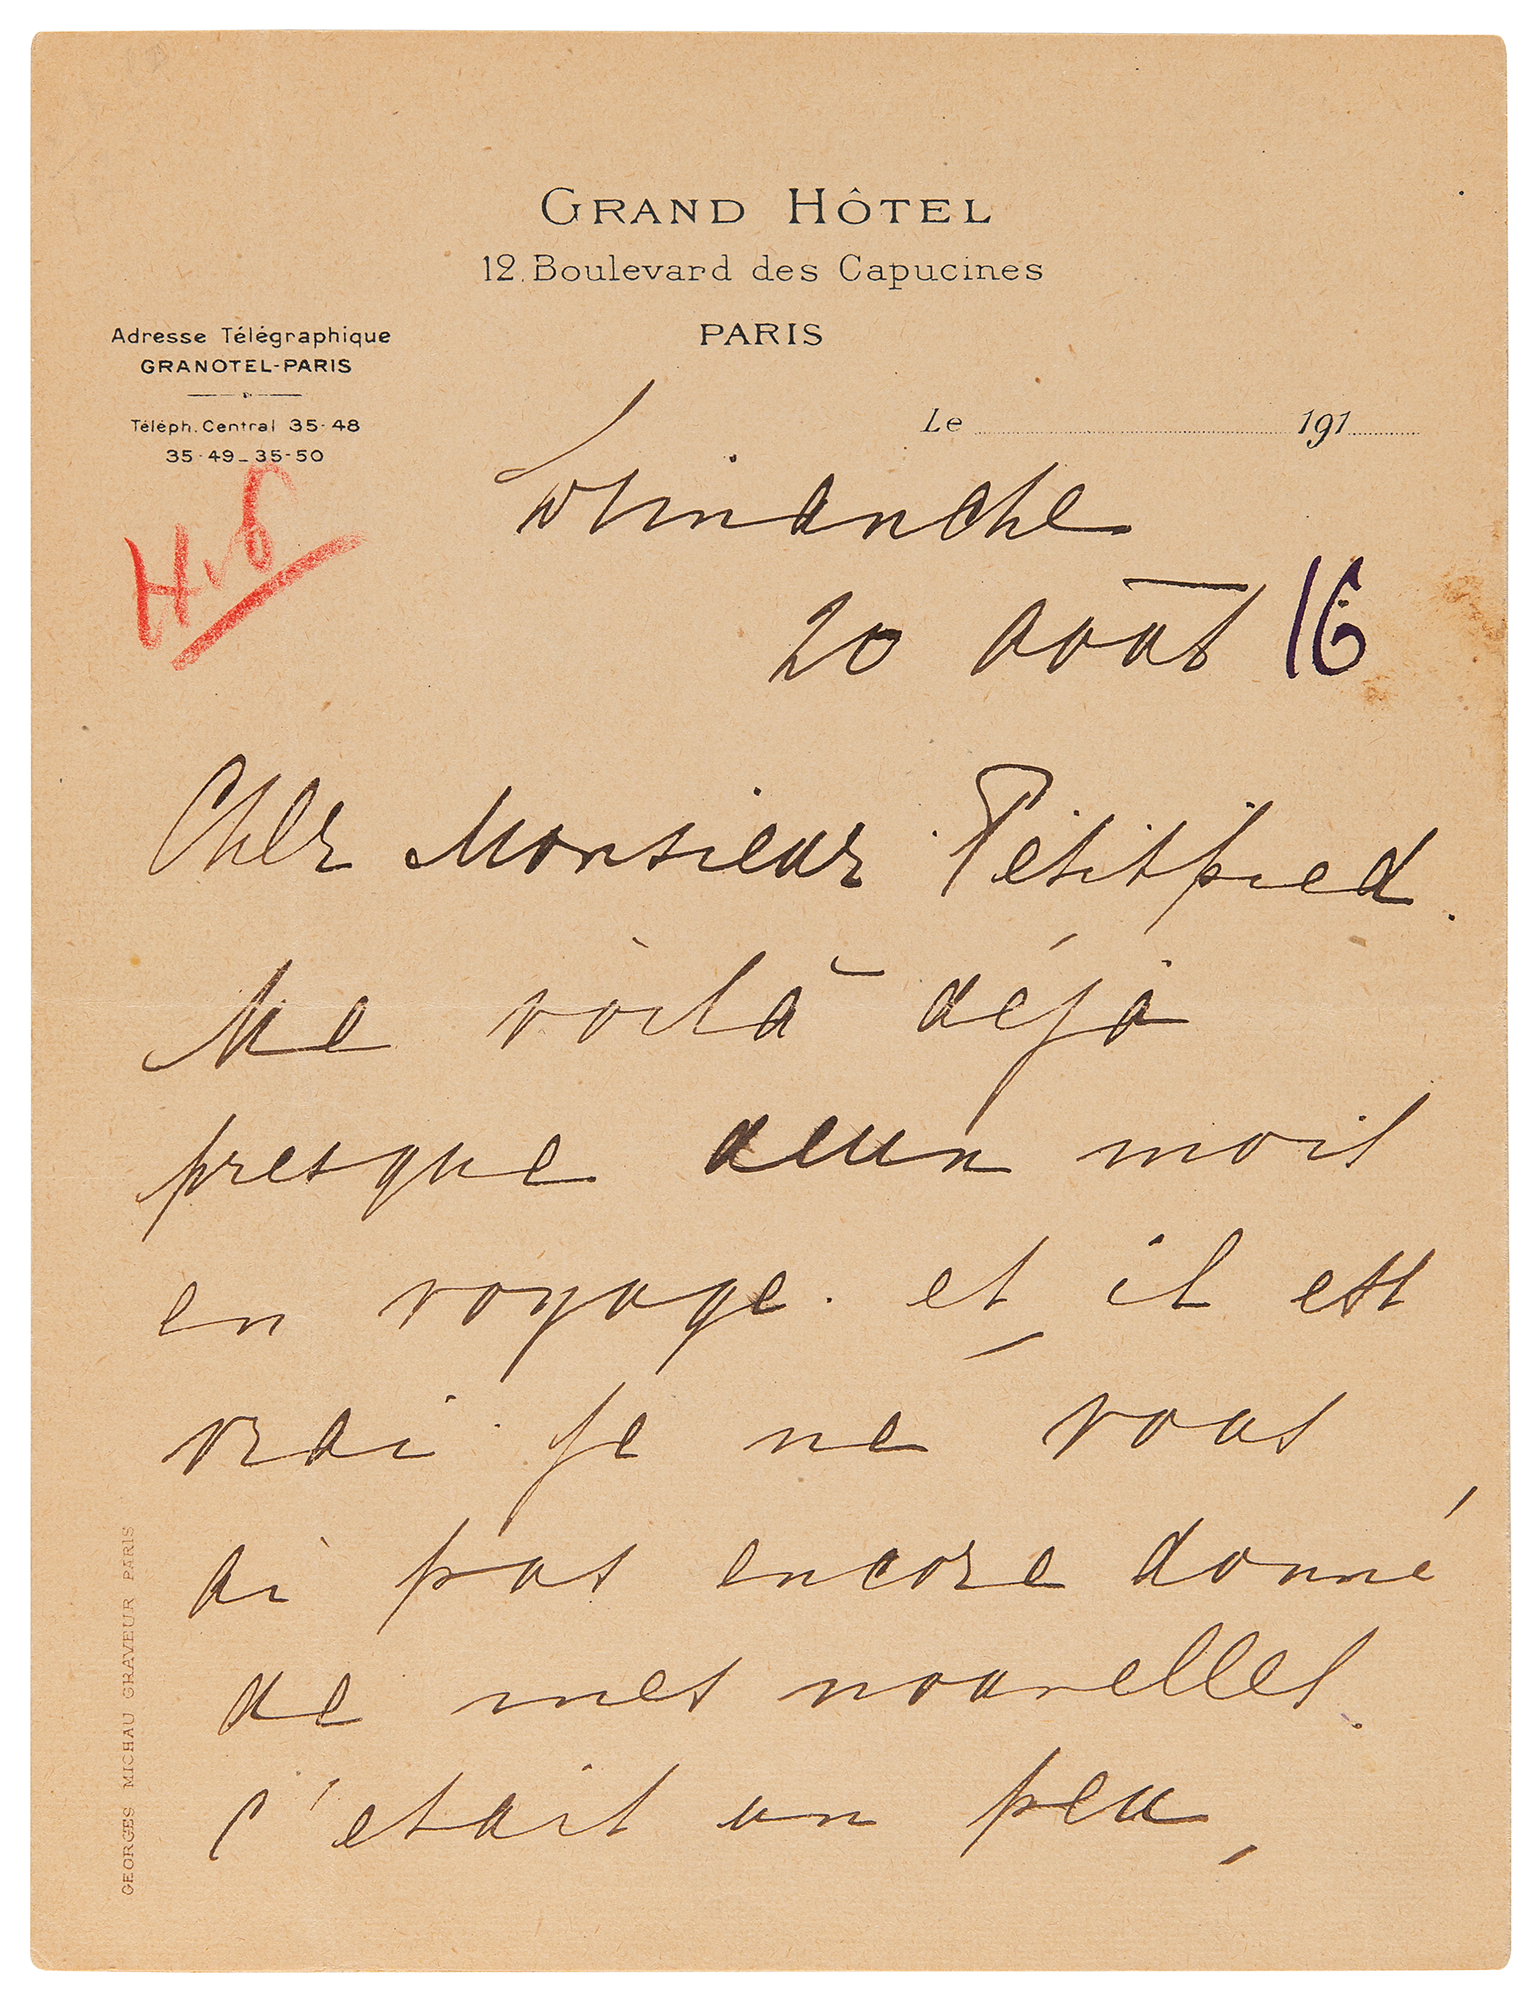 GRAND HÔTEL
12. Boulevard des Capucines
PARIS
Adresse Télégraphique
GRANOTEL-PARIS
Téléph. Central 35-48
35-49_35-50
Le 191
Dimanche
20 août 16
Cher Monsieur Petitpied.
Me voilà déjà
presque deux mois
en voyage. et, il est
vrai je ne vous
ai pas encore donné
de mes nouvelles.
c'etait un peu,
GEORGES MICHAU GRAVEUR PARIS